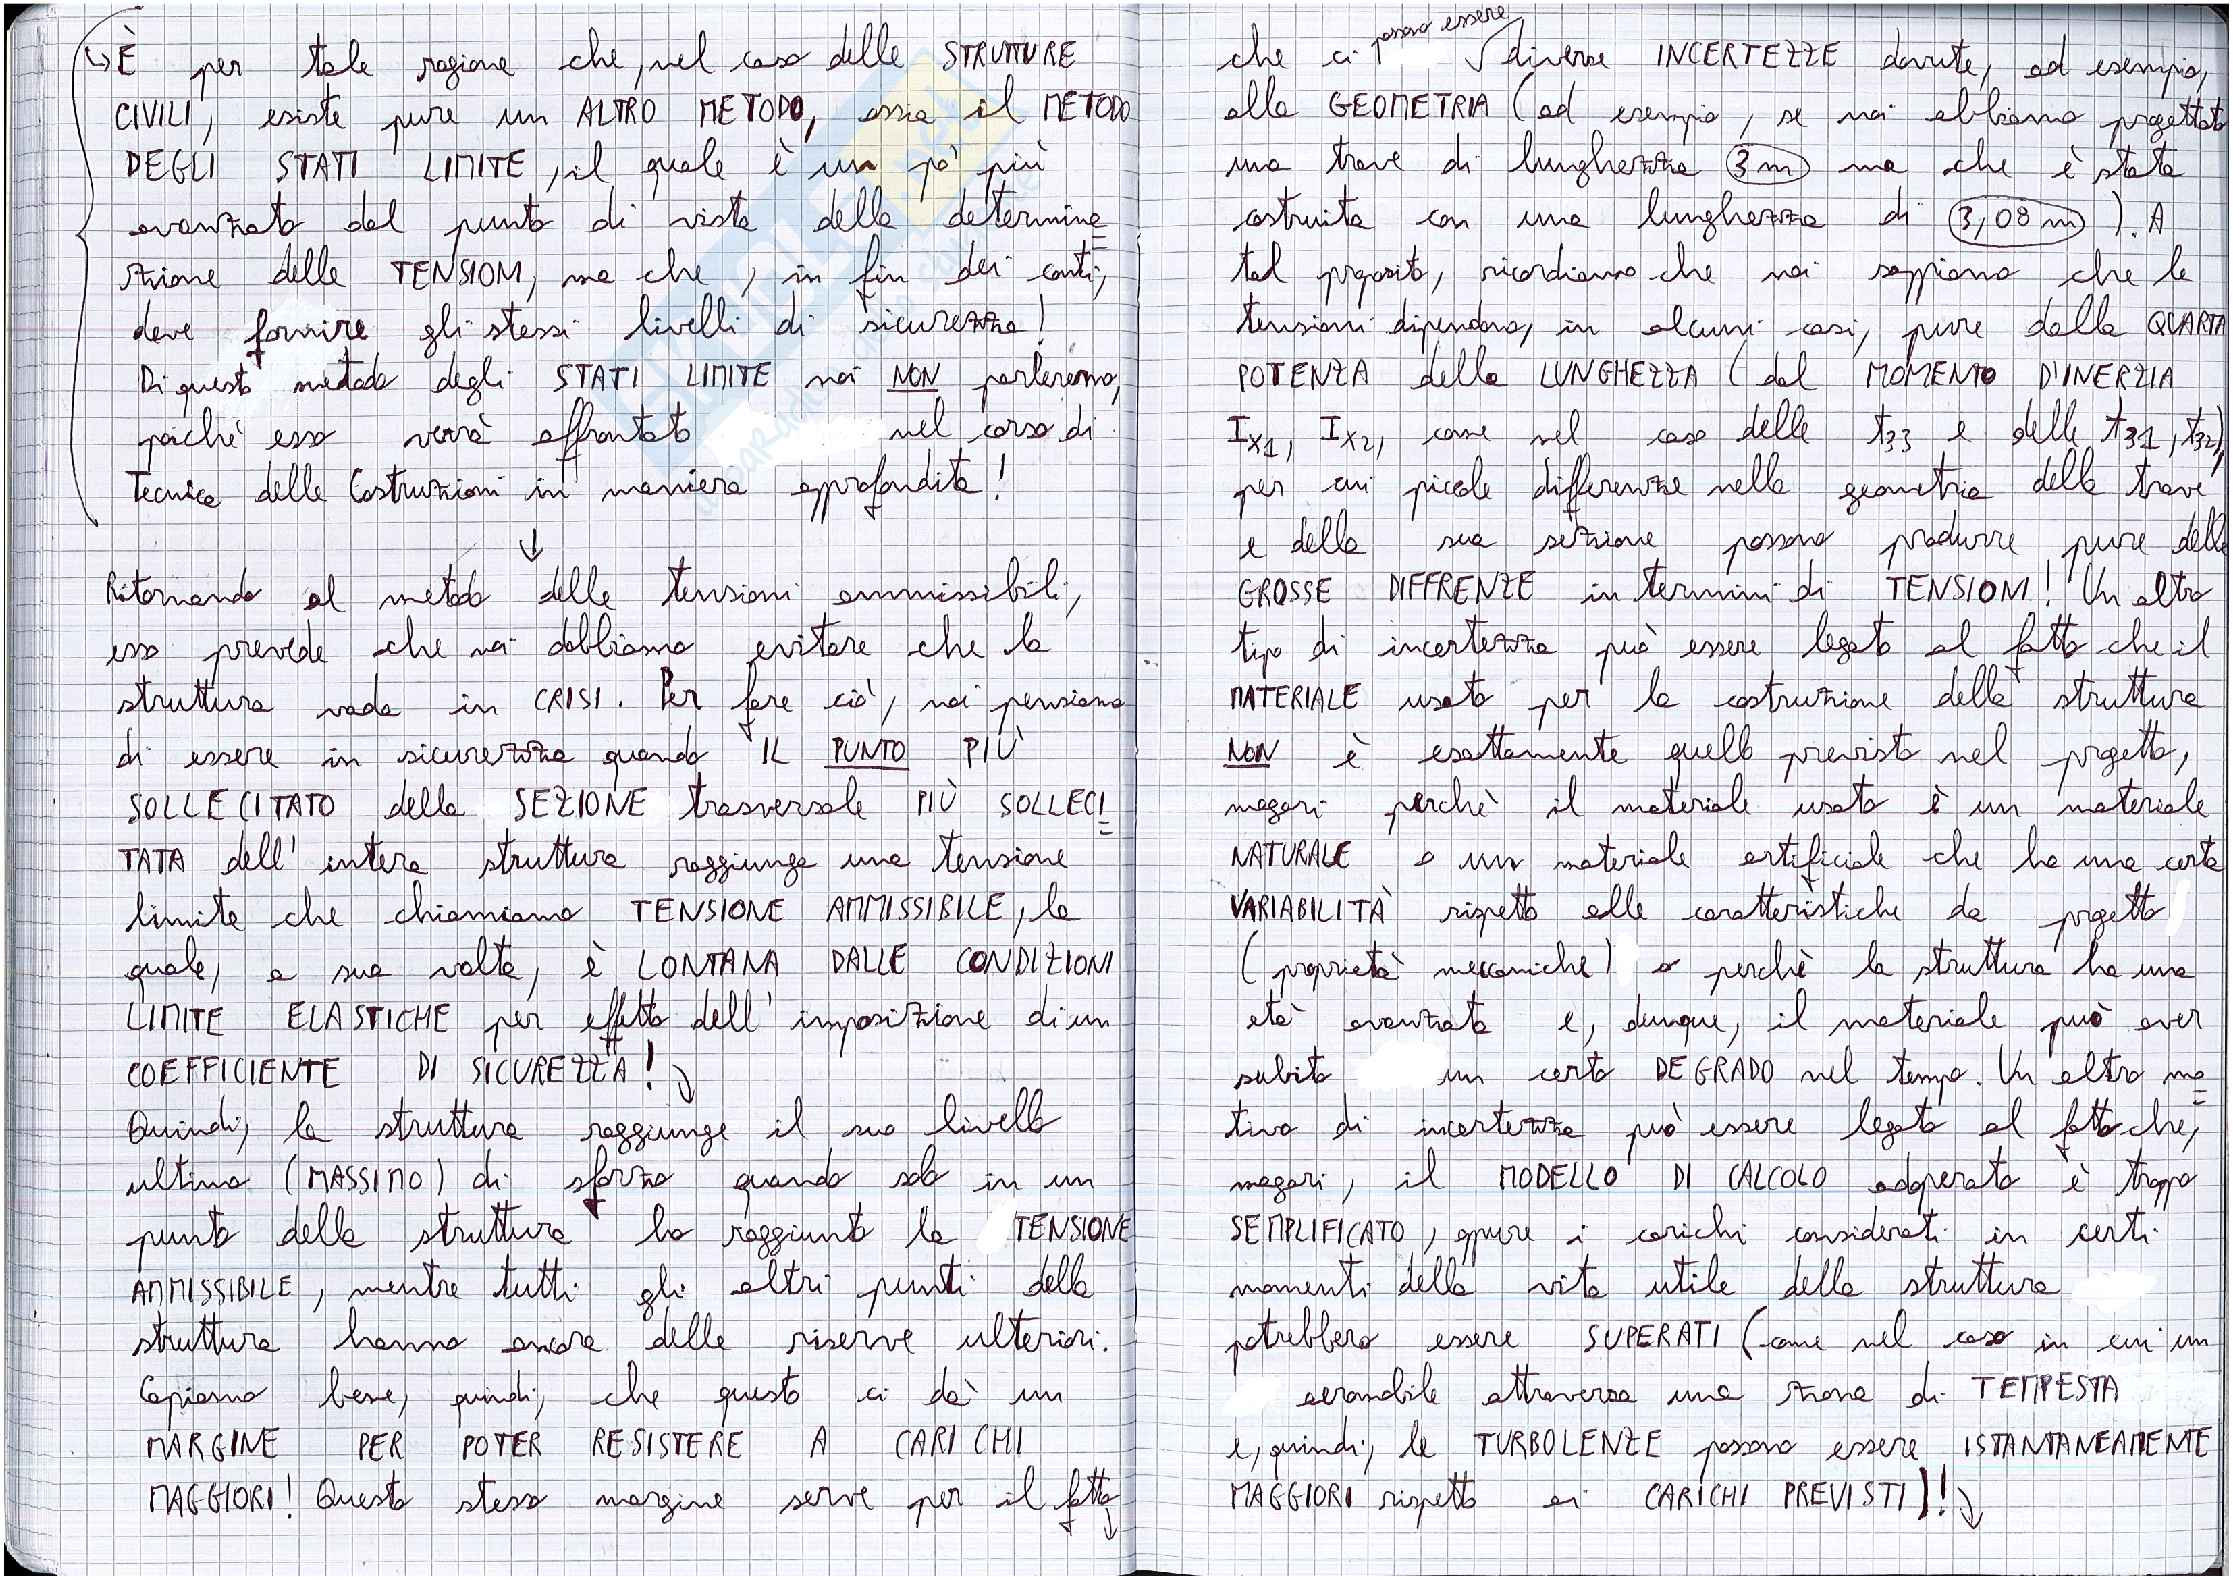 ↳ È per tale ragione che, nel caso delle STRUTTURE
CIVILI, esiste pure un ALTRO METODO, ossia il METODO
DEGLI STATI LIMITE, il quale è un pò più
avanzato dal punto di vista della determina=
zione delle TENSIONI, ma che, in fin dei conti,
deve fornire gli stessi livelli di sicurezza!
Di questo metodo degli STATI LIMITE noi NON parleremo,
poiché esso verrà affrontato nel corso di
Tecnica delle Costruzioni in maniera approfondita!
↓
Ritornando al metodo delle tensioni ammissibili,
esso prevede che noi dobbiamo evitare che la
struttura vada in CRISI. Per fare ciò, noi pensiamo
di essere in sicurezza quando IL PUNTO PIÙ
SOLLECITATO della SEZIONE trasversale PIÙ SOLLECI=
TATA dell'intera struttura raggiunge una tensione
limite che chiamiamo TENSIONE AMMISSIBILE, la
quale, a sua volta, è LONTANA DALLE CONDIZIONI
LIMITE ELASTICHE per effetto dell'imposizione di un
COEFFICIENTE DI SICUREZZA! ↓
Quindi, la struttura raggiunge il suo livello
ultimo (MASSIMO) di sforzo quando solo in un
punto della struttura ho raggiunto la TENSIONE
AMMISSIBILE, mentre tutti gli altri punti della
struttura hanno ancora delle riserve ulteriori.
Capiamo bene, quindi, che questo ci dà un
MARGINE PER POTER RESISTERE A CARICHI
MAGGIORI! Questo stesso margine serve per il fatto ↓
che ci possono essere diverse INCERTEZZE dovute, ad esempio,
alla GEOMETRIA (ad esempio, se noi abbiamo progettato
una trave di lunghezza 3 m ma che è stata
costruita con una lunghezza di 3,08 m). A
tal proposito, ricordiamo che noi sappiamo che le
tensioni dipendono, in alcuni casi, pure dalla QUARTA
POTENZA della LUNGHEZZA (dal MOMENTO D'INERZIA
Ix1, Ix2, come nel caso delle t33 e delle t31, t32),
per cui piccole differenze nella geometria della trave
e della sua sezione possono produrre pure delle
GROSSE DIFFRENZE in termini di TENSIONI! Un altro
tipo di incertezza può essere legato al fatto che il
MATERIALE usato per la costruzione della struttura
NON è esattamente quello previsto nel progetto,
magari perchè il materiale usato è un materiale
NATURALE o un materiale artificiale che ha una certa
VARIABILITÀ rispetto alle caratteristiche da progetto
(proprietà meccaniche) o perchè la struttura ha una
età avanzata e, dunque, il materiale può aver
subito un certo DEGRADO nel tempo. Un altro mo=
tivo di incertezza può essere legato al fatto che,
magari, il MODELLO DI CALCOLO adoperato è troppo
SEMPLIFICATO, oppure i carichi considerati in certi
momenti della vita utile della struttura
potrebbero essere SUPERATI (come nel caso in cui un
aeromobile attraversa una zona di TEMPESTA
e, quindi, le TURBOLENZE possono essere ISTANTANEAMENTE
MAGGIORI rispetto ai CARICHI PREVISTI)! ↓